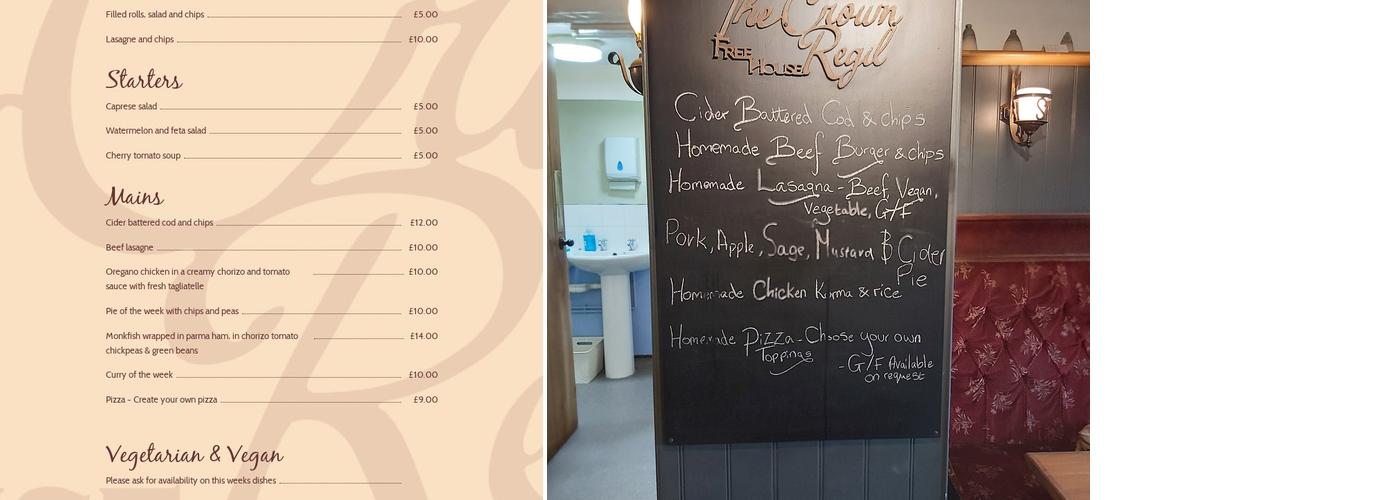 Filled rolls, salad and chips £5.00
Lasagne and chips £10.00
Starters
Caprese salad £5.00
Watermelon and feta salad £5.00
Cherry tomato soup £5.00
Mains
Cider battered cod and chips £12.00
Beef lasagne £10.00
Oregano chicken in a creamy chorizo and tomato £10.00
sauce with fresh tagliatelle
Pie of the week with chips and peas £10.00
Monkfish wrapped in parma ham, in chorizo tomato £14.00
chickpeas & green beans
Curry of the week £10.00
Pizza - Create your own pizza £9.00
Vegetarian & Vegan
Please ask for availability on this weeks dishes
The Crown
Regil
FREE
HOUSE
Cider Battered Cod & chips
Homemade Beef Burger & chips
Homemade Lasagna - Beef, Vegan,
Vegetable, G/F
Pork, Apple, Sage, Mustard & Cider
Pie
Homemade Chicken Korma & rice
Homemade Pizza - Choose your own
Toppings
- G/F Available
on request